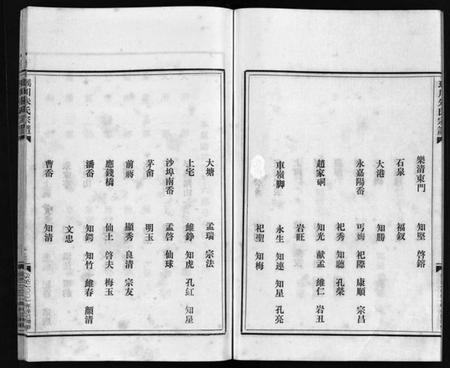 樂清東門 知堅 啓鎔
石泉 福釵
大港 知勝
永嘉陽岙 丐姆 祀際 康順 宗昌
祀秀 知聽 孔榮
趙家硐 知光 獻孟 維仁 岩丑
岩旺
車嶺脚 永生 知連 知星 孔亮
祀聖 知梅
大塘 孟瑞 宗法
上宅 維錚 知虎 孔紅 知星
沙埠南番 孟啓 仙球
茅畬 明玉
前蔣 顯秀 良清 宗友
應錢橋 仙土 啓夫 梅玉
潘岙 知鍔 知竹 維春 顏清
文忠
曹岙 知清